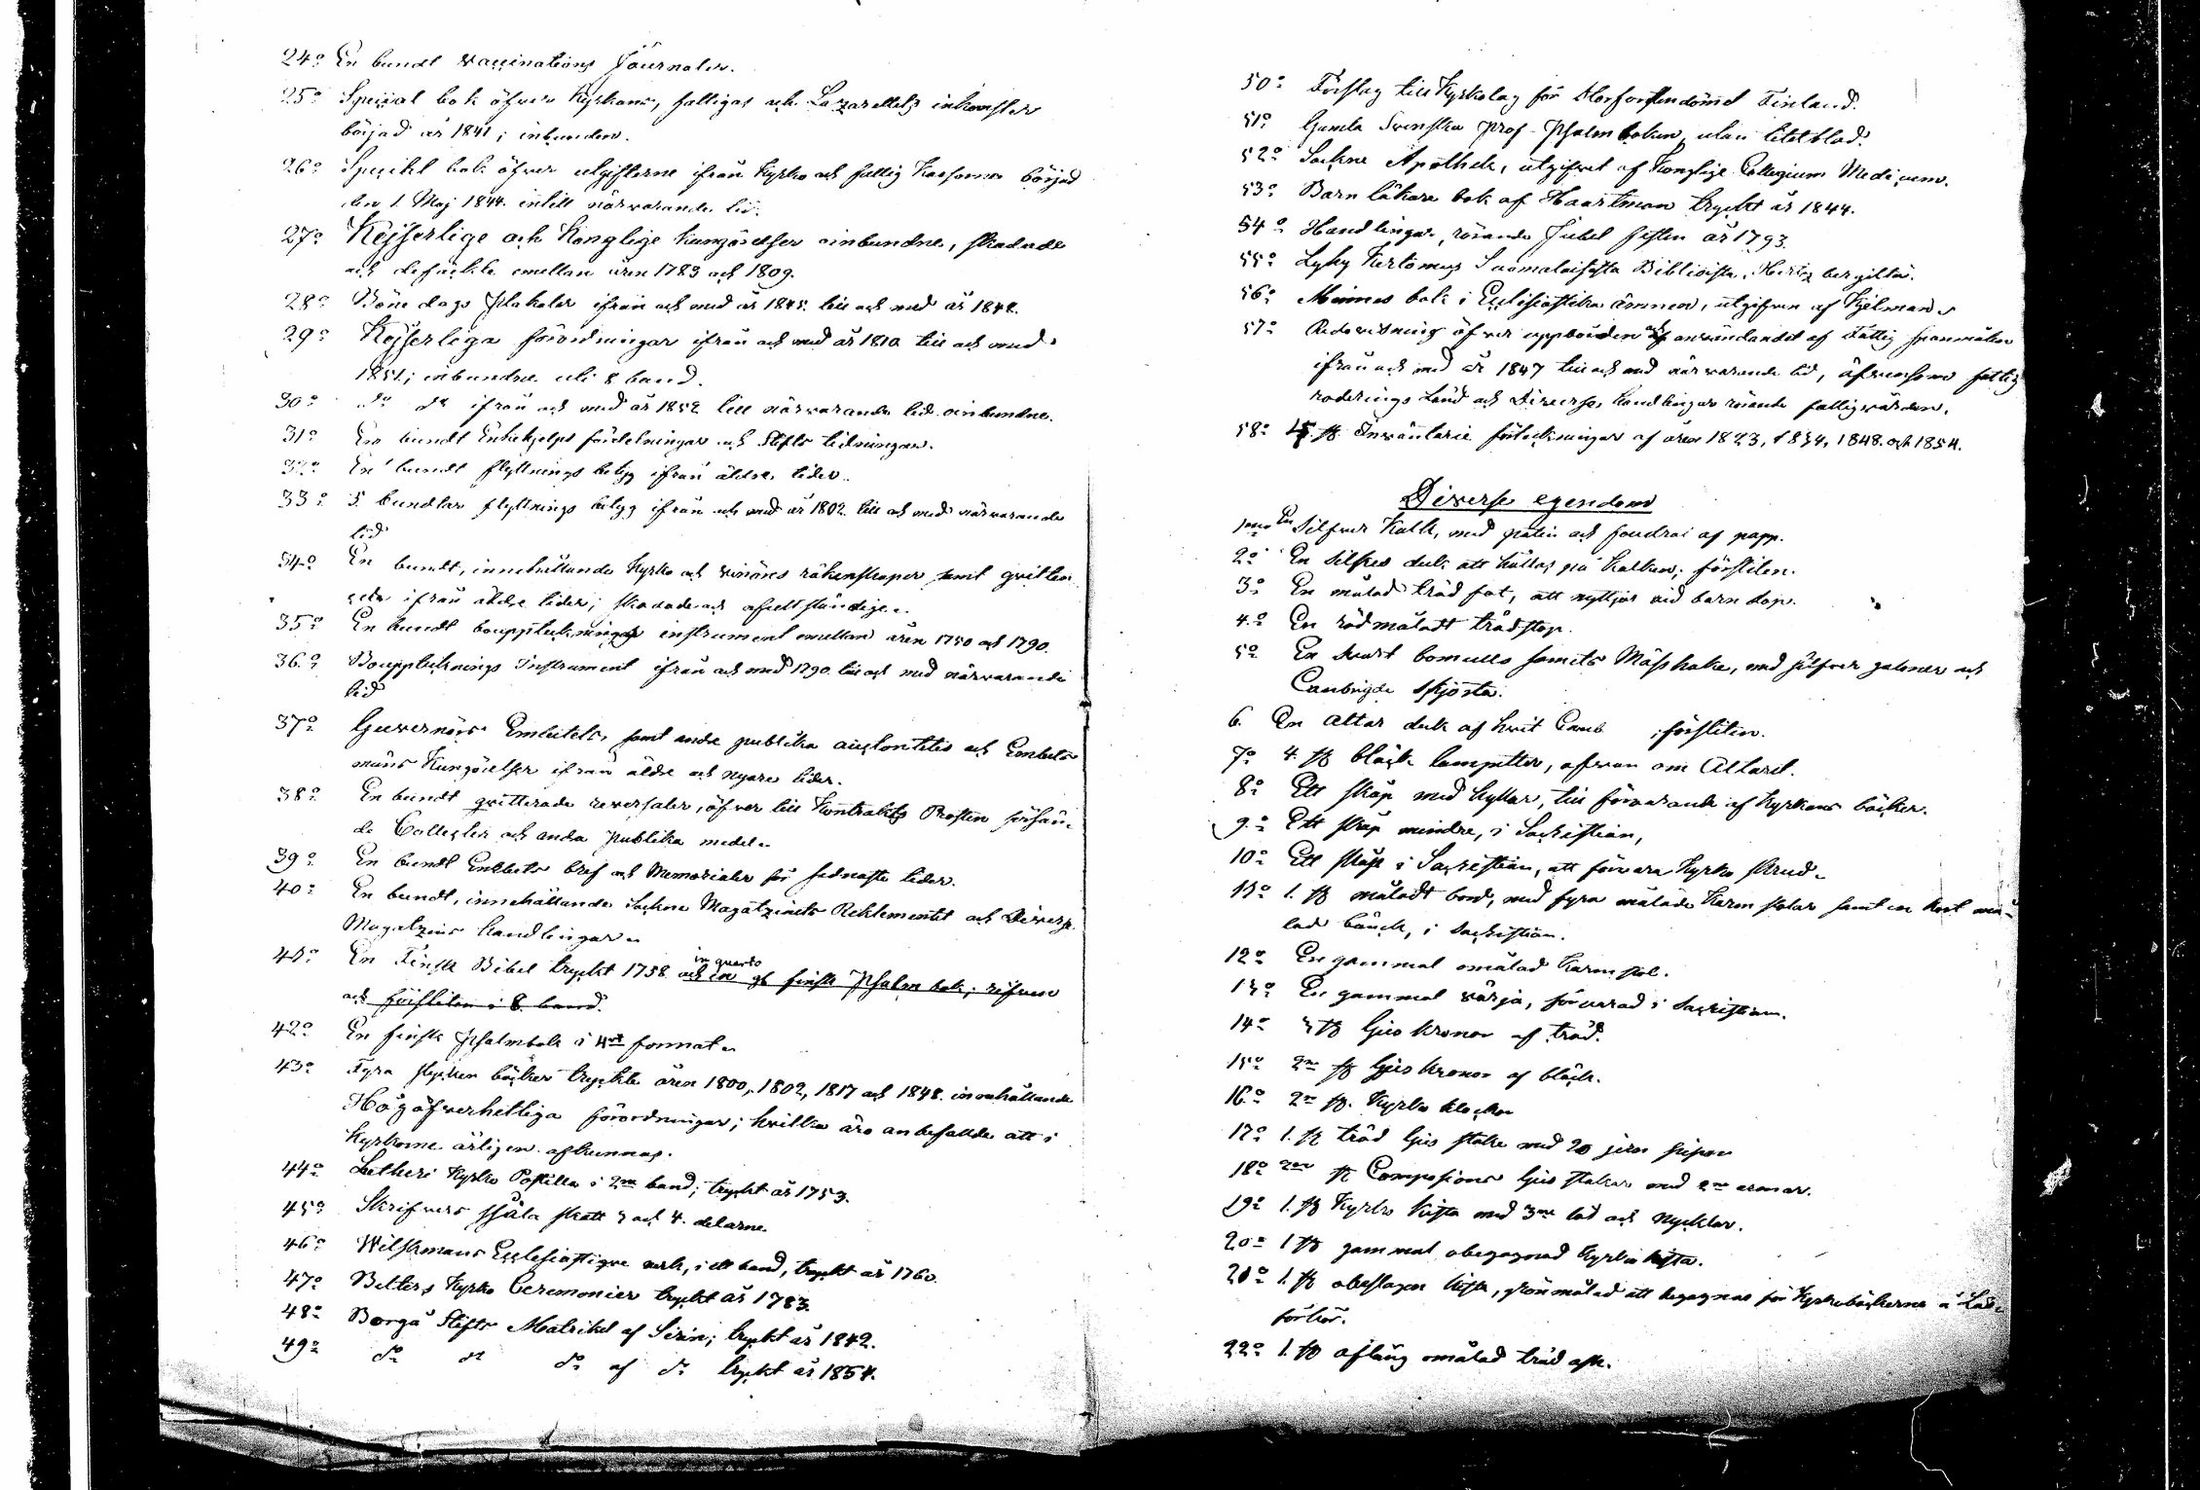 24o En bundt vaccinations Journaler.
25o Special bok öfver Kyrkans, fattigas och Lazarettets inkomster
börjad år 1841; inbunden.
26o Speciel bok öfver utgifterne ifrån Kyrko och fattig Kassorne börjad
den 1 Maj 1844. intill närvarande tid.
27o Kejserlige och Konglige kungörelser oinbundne, skadade
och defäckte emellan åren 1783 och 1809.
28o Böne dags Plakater ifrån och med år 1845. till och med år 1848.
29o Kejserliga förordningar ifrån och med år 1810 till och med
1851; inbundne uti 8 band.
30o do do ifrån och med år 1852 till närvarande tid. oinbundne.
31o En bundt Enkehjelps fördelningar och Stifts tidningar.
32o En bundt flyttnings betyg ifrån äldre tider.
33o 5 bundtar flyttnings betyg ifrån och med år 1802 till och med närvarande
tid
34o En bundt, innehållande Kyrko och räkenskaper samt qvitten
ser ifrån äldre tider; skadade och ofullständige.
35o En bundt bouppteckningss instrument emellan åren 1750 och 1790.
36o Bouppteknings Instrument ifrån och med 1790 till och med närvarande
tid
37o Guvernörs Embetets, samt andre publika auctoritets och Embets
mäns Kungörelser ifrån äldre och nyare tider.
38o En bundt qvitterade reversaler, öfver till Kontrakts Prosten försän-
de Collecter och andra publika medel.
39o En bundt Embets bref och Memorialer för sednaste tider.
40o En bundt, innehållande Sockne Magatzinets Reklementet och Diverse
Magatzins handlingar.
41o En Finsk Bibel tryckt 1758. in quarto och en gl finsk Psalm bok; rifven
och försliten i 8. band.
42o En finsk Psalmbok i 4to format.
43o Fyra stycken böcker tryckte åren 1800, 1802, 1817 och 1848. innehållande
Högöfverhetliga förordningar; hvilka äro anbefallde att i
Kyrkorne årligen afkunnas.
44o Lutheri Kyrko Postilla i 2ne band; tryckt år 1753.
45o Skrifvers själa skatt 3 och 4. delarne.
46o Wilskmans Ecclesiastique verk, i ett band, tryckt år 1760.
47o Bælters Kyrko Ceremonier tryckt år 1783.
48o Borgå Stifts Matrikel af Sirén; tryckt år 1842.
49o do do do af do tryckt år 1854.
50o Förslag till Kyrkolag för Storfurstendömet Finland.
51o Gamla Svenska Prof-Psalm boken, utan titelblad.
52o Sockne Apothek, utgifvet af Konglige Collegium Medicum.
53o Barn läkare bok af Haartman tryckt år 1844.
54o Handlingar, rörande Jubel festen år 1793.
55o Lyhy Kertomus Suomalaisista Biblioista,
56o Minnes bok i Ecclesiastika ämnen, utgifven af Hjelman
57o Redovisning öfver uppbörden och användandet af Fattig spanmålen
ifrån och med år 1847 till och med närvarande tid, äfvensom fattig
roterings Längd och Diverse handlingar rörande fattigvården.
58o st. Inventarie förteckningar af åren 1823, 1834, 1848. och 1854.
Diverse egendom
1mo En Silfver Kalk, med patén och foudral af papp.
2o En Silkes duk att hållas på Kalken; försliten.
3o En målad träd fat, att nyttjas vid barn dop.
4o En rödmåladt trädstop.
5o En svart bomulls samets Mässhake, med silfver galoner och
skjorta.
6. En altar duk af hvit försliten.
7o 4. st bläck lampetter, ofvan om Altaret.
8o Ett skåp med hyllor, till förvarande af Kyrkans böcker.
9o Ett skåp mindre, i Sacristian,
10o Ett skåp i Sacristian, att förvara Kyrko skrud.
11o 1. st måladt bord, med fyra målade Karm stolar samt en kort må-
lad bänck, i Sacristian.
12o En gammal omålad Karm stol.
13o En gammal värja, förvarad i Sacristian.
14o 3 st ljus kronor af träd.
15o 2ne st ljus kronor af bläck.
16o 2ne st. Kyrko klockor
17o 1. st träd ljus stake med 20 jern pipor
18o 2ne st Compositions ljus stakar med 2ne armar.
19o 1. st Kyrko kista med 3ne lås och Nycklar.
20o 1 st gammal obegagnad Kyrko kista.
21o 1. st obeslagen kista, grönmålad att begagnas för Kyrkoböckerne å Läs-
förhör.
22o 1. st aflång omålad träd ask.